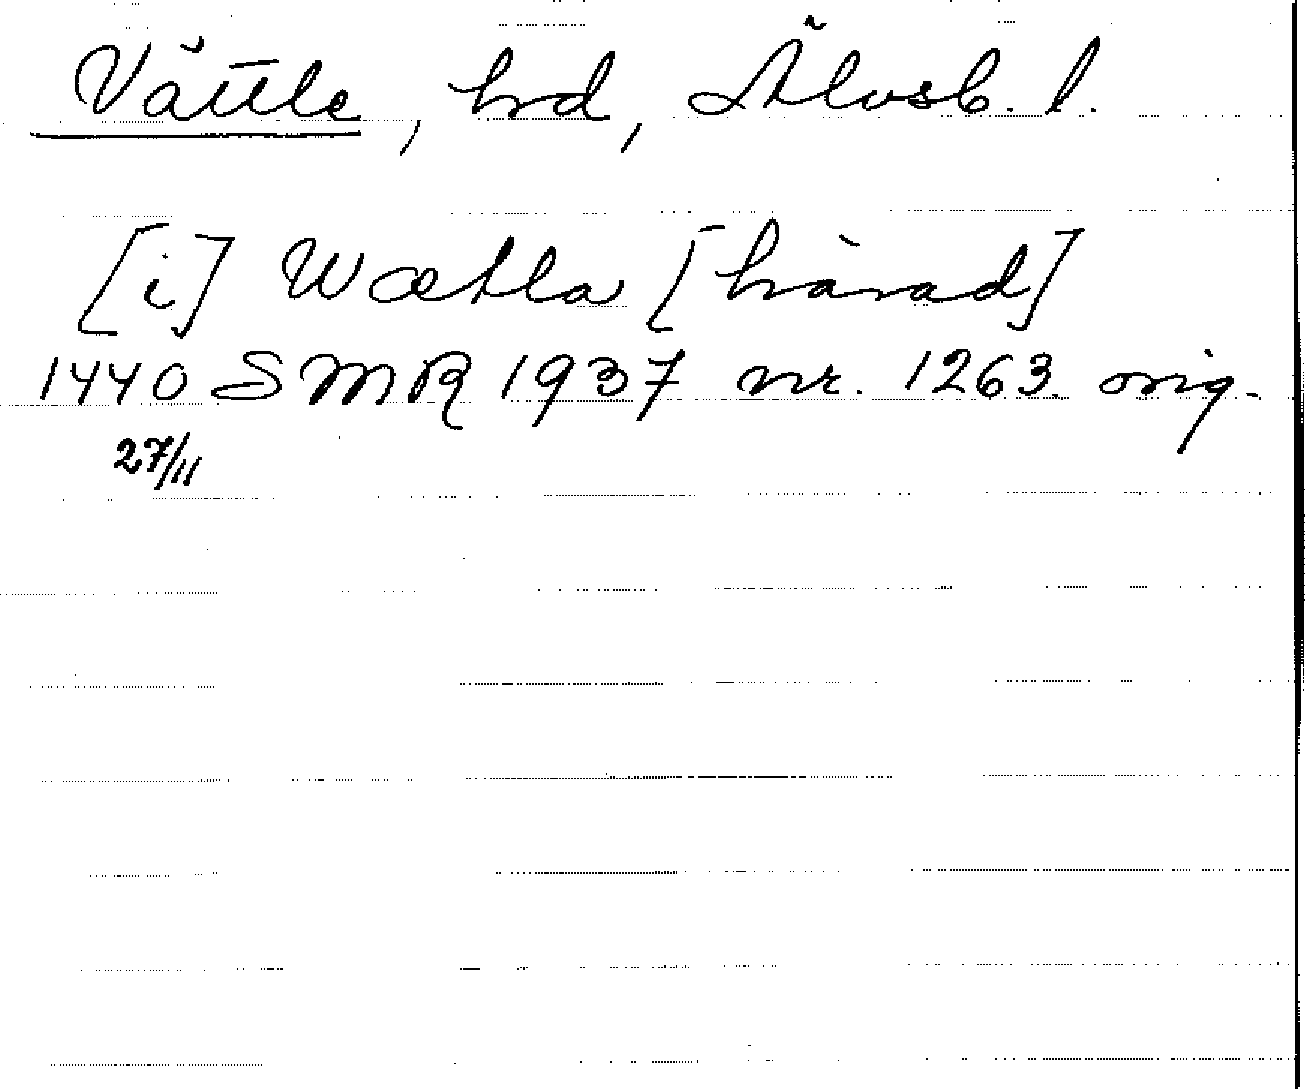 Vättle, hd, Älvsb. l.
[i] Wætla [härad]
1440 SMR 1937 nr. 1263. orig.
27/11